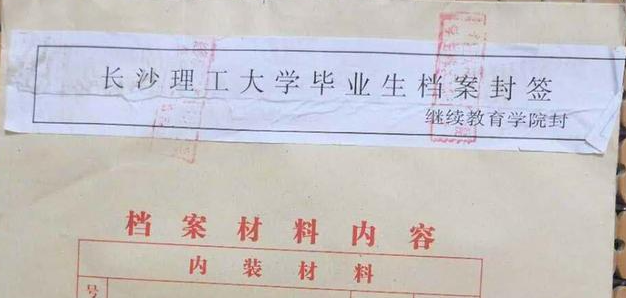 长沙理工大学毕业生档案封签
继续教育学院封
档案材料内容
内装材料
号